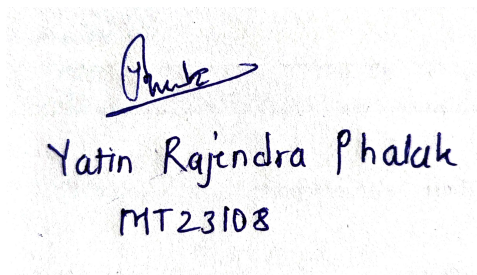 Yatin Rajendra Phalak
MT23108